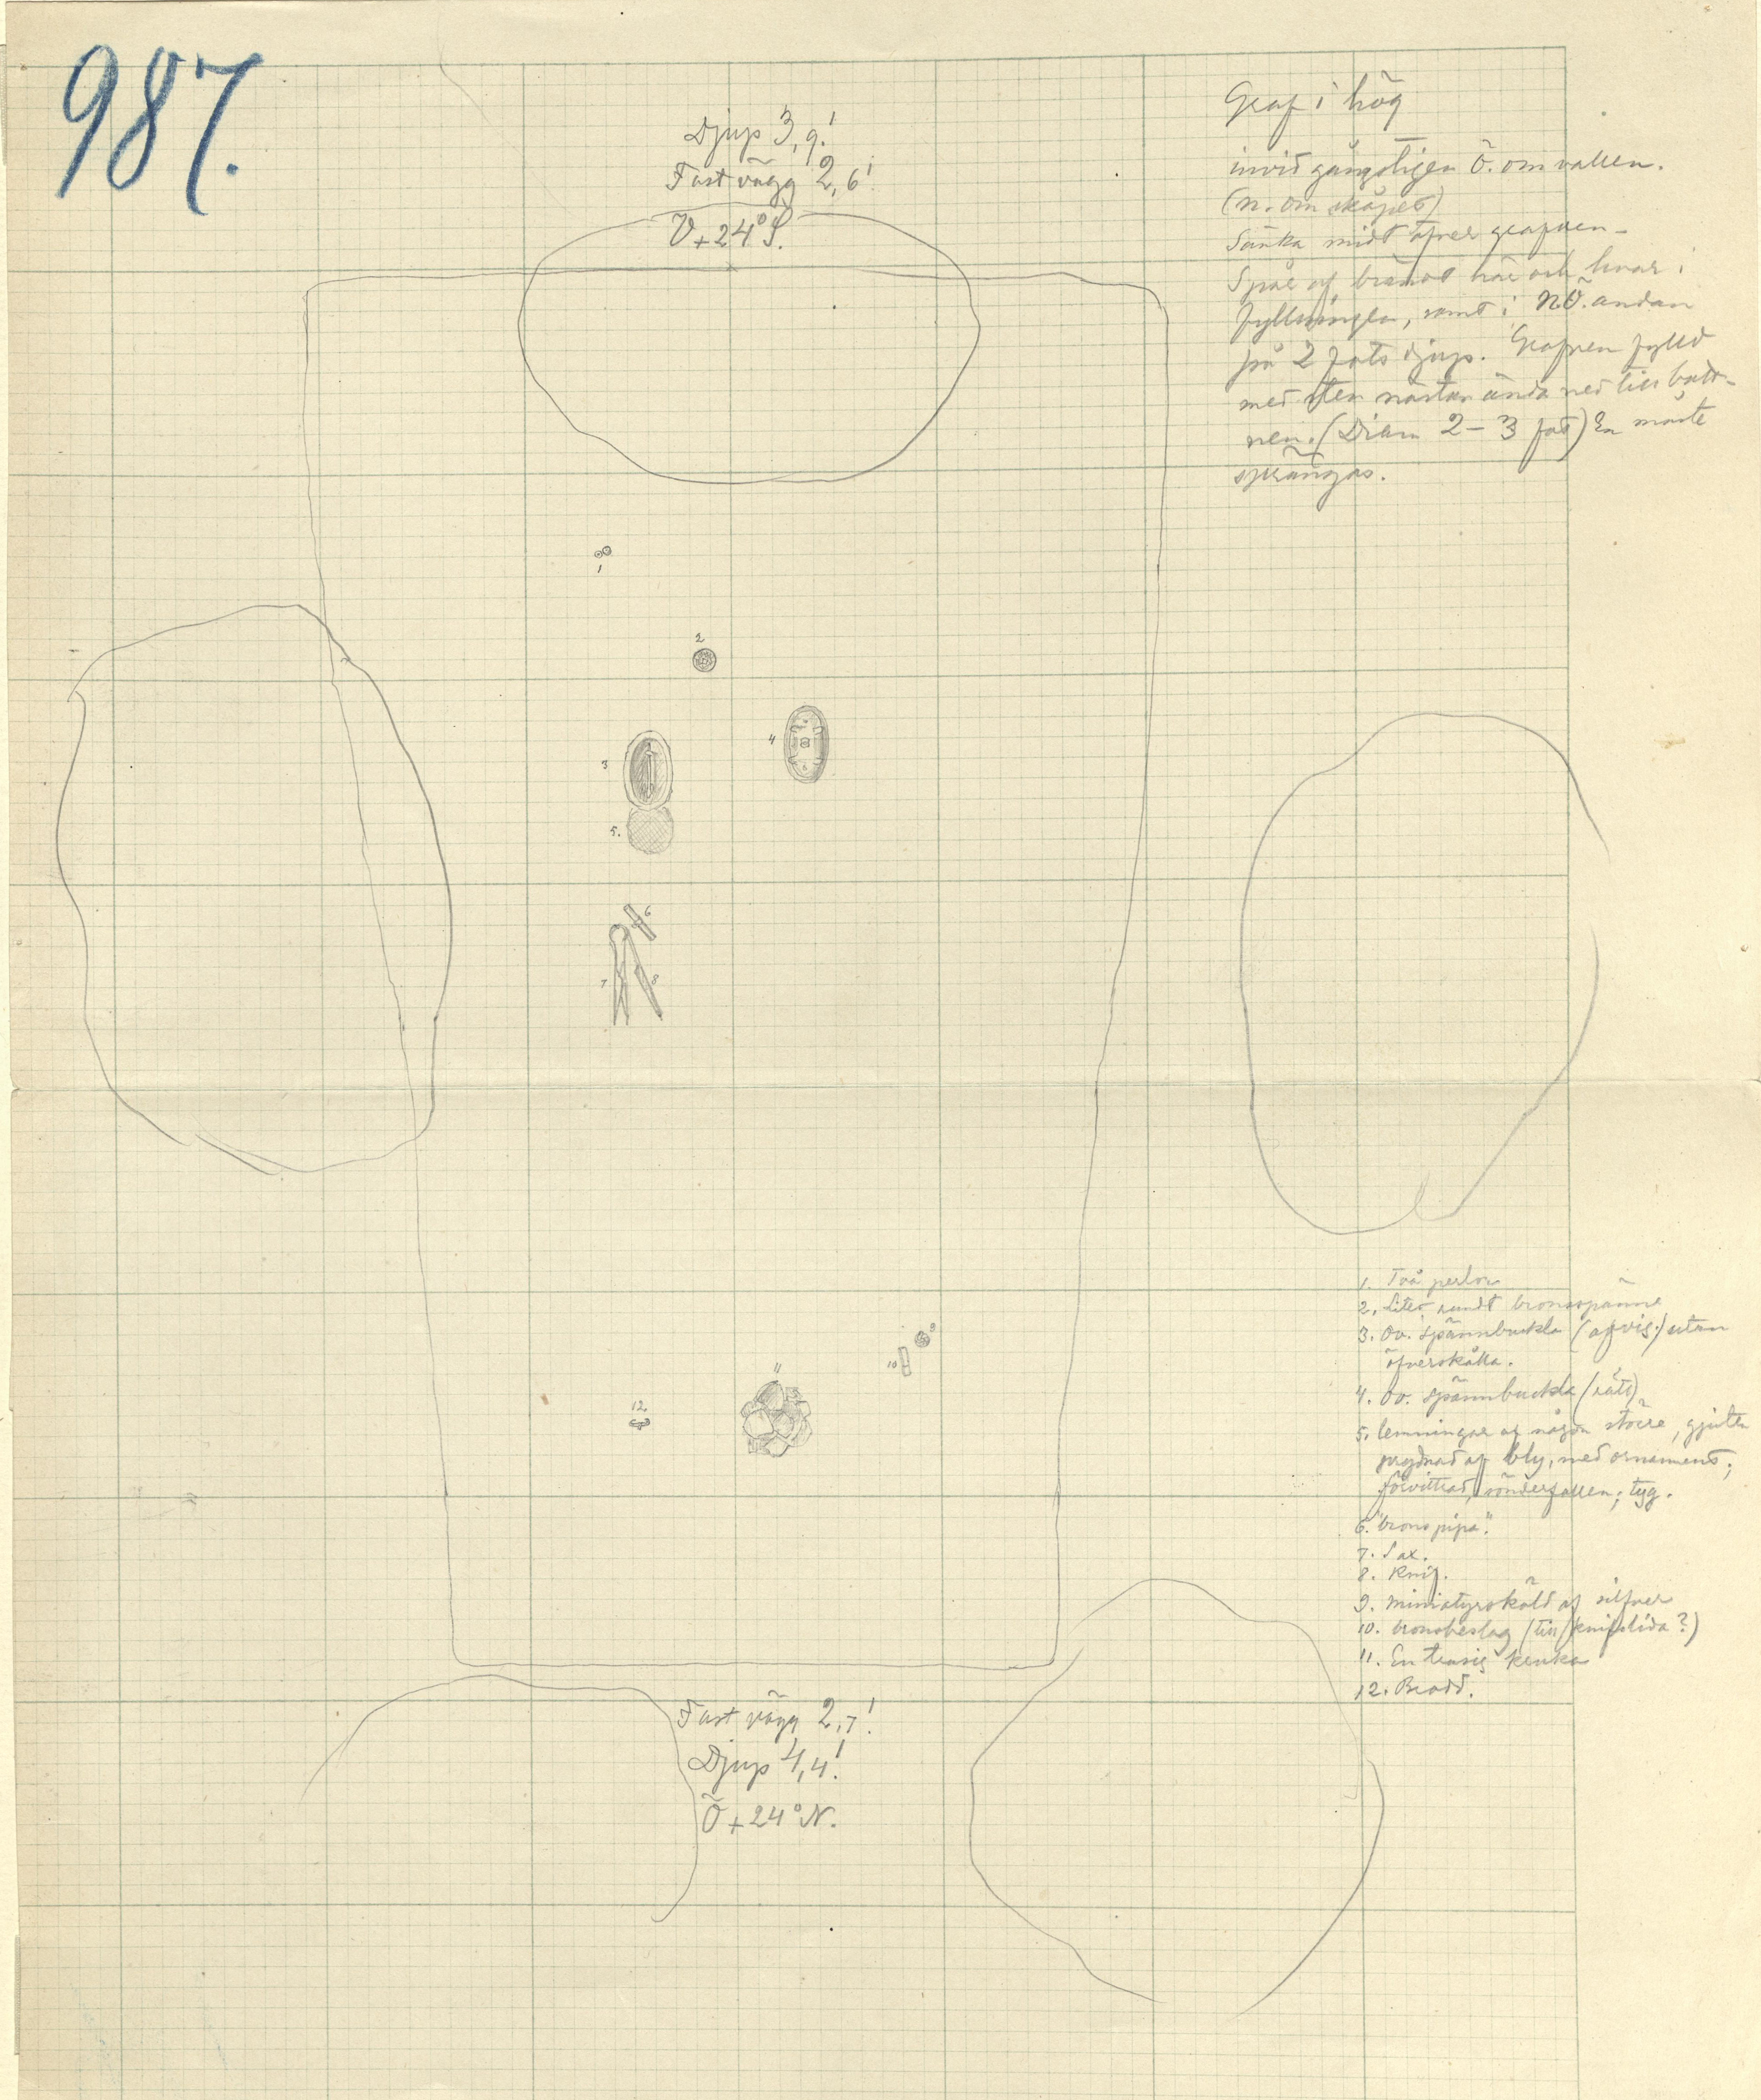 987.
Djup 3,9!
Fast vägg 2,6!
V+24°S.
Graf i hög
invid gångstigen Ö. om vallen.
(n. om skåpet)
Sänka midt öfver grafven –
Spår af brändt här och hvar i
fyllningen, samt i NÖ. ändan
på 2 fots djup. Grafven fylld
med sten nästan ända ned till bott-
nen. (Diam 2–3 fot) En måste
sprängas.
1
2
3
4
5.
6
7
8
9
10
11
12.
1. Två perlor
2. Litet rundt bronsspänne
3. Ov. spännbuckla (afvig) utan
öfverskålla.
4. Ov. spännbuckla (rät)
5. lemningar af någon större, gjuten
prydnad af bly, med ornament;
förvittrad, sönderfallen; tyg.
6. "bronspipa".
7. Sax.
8. Knif.
9. miniatyrsköld af silfver
10. bronsbeslag (till knifslida?)
11. En trasig kruka
12. Brodd.
Fast vägg 2,7!
Djup 4,4!
Ö+24°N.